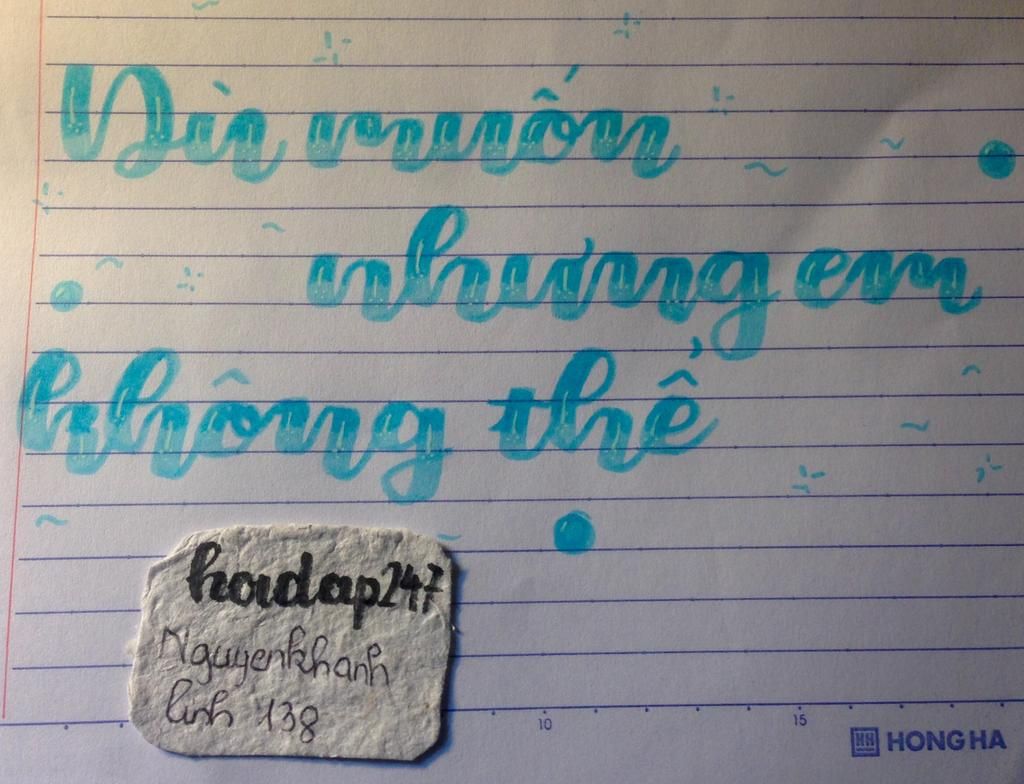 Dù muốn
nhưng em
không thể
hoidap247
Nguyenkhanh
linh 138
10 15
HONG HA